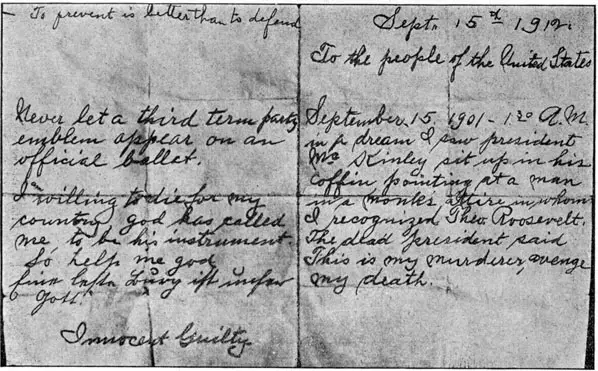 - To prevent is better than to defend
Never let a third term party
emblem appear on an
official ballot.
I am willing to die for my
country, god has called
me to be his instrument
So help me god
Eine feste Burg ist unser
Gott.
Innocent Guilty
Sept. 15th 1912.
To the people of the United States
September 15. 1901 - 1:30 A.M.
in a dream I saw president
Mc Kinley sit up in his
coffin pointing at a man
in a monks attire in whom
I recognized Theo. Roosevelt.
The dead president said
This is my murderer, avenge
my death.